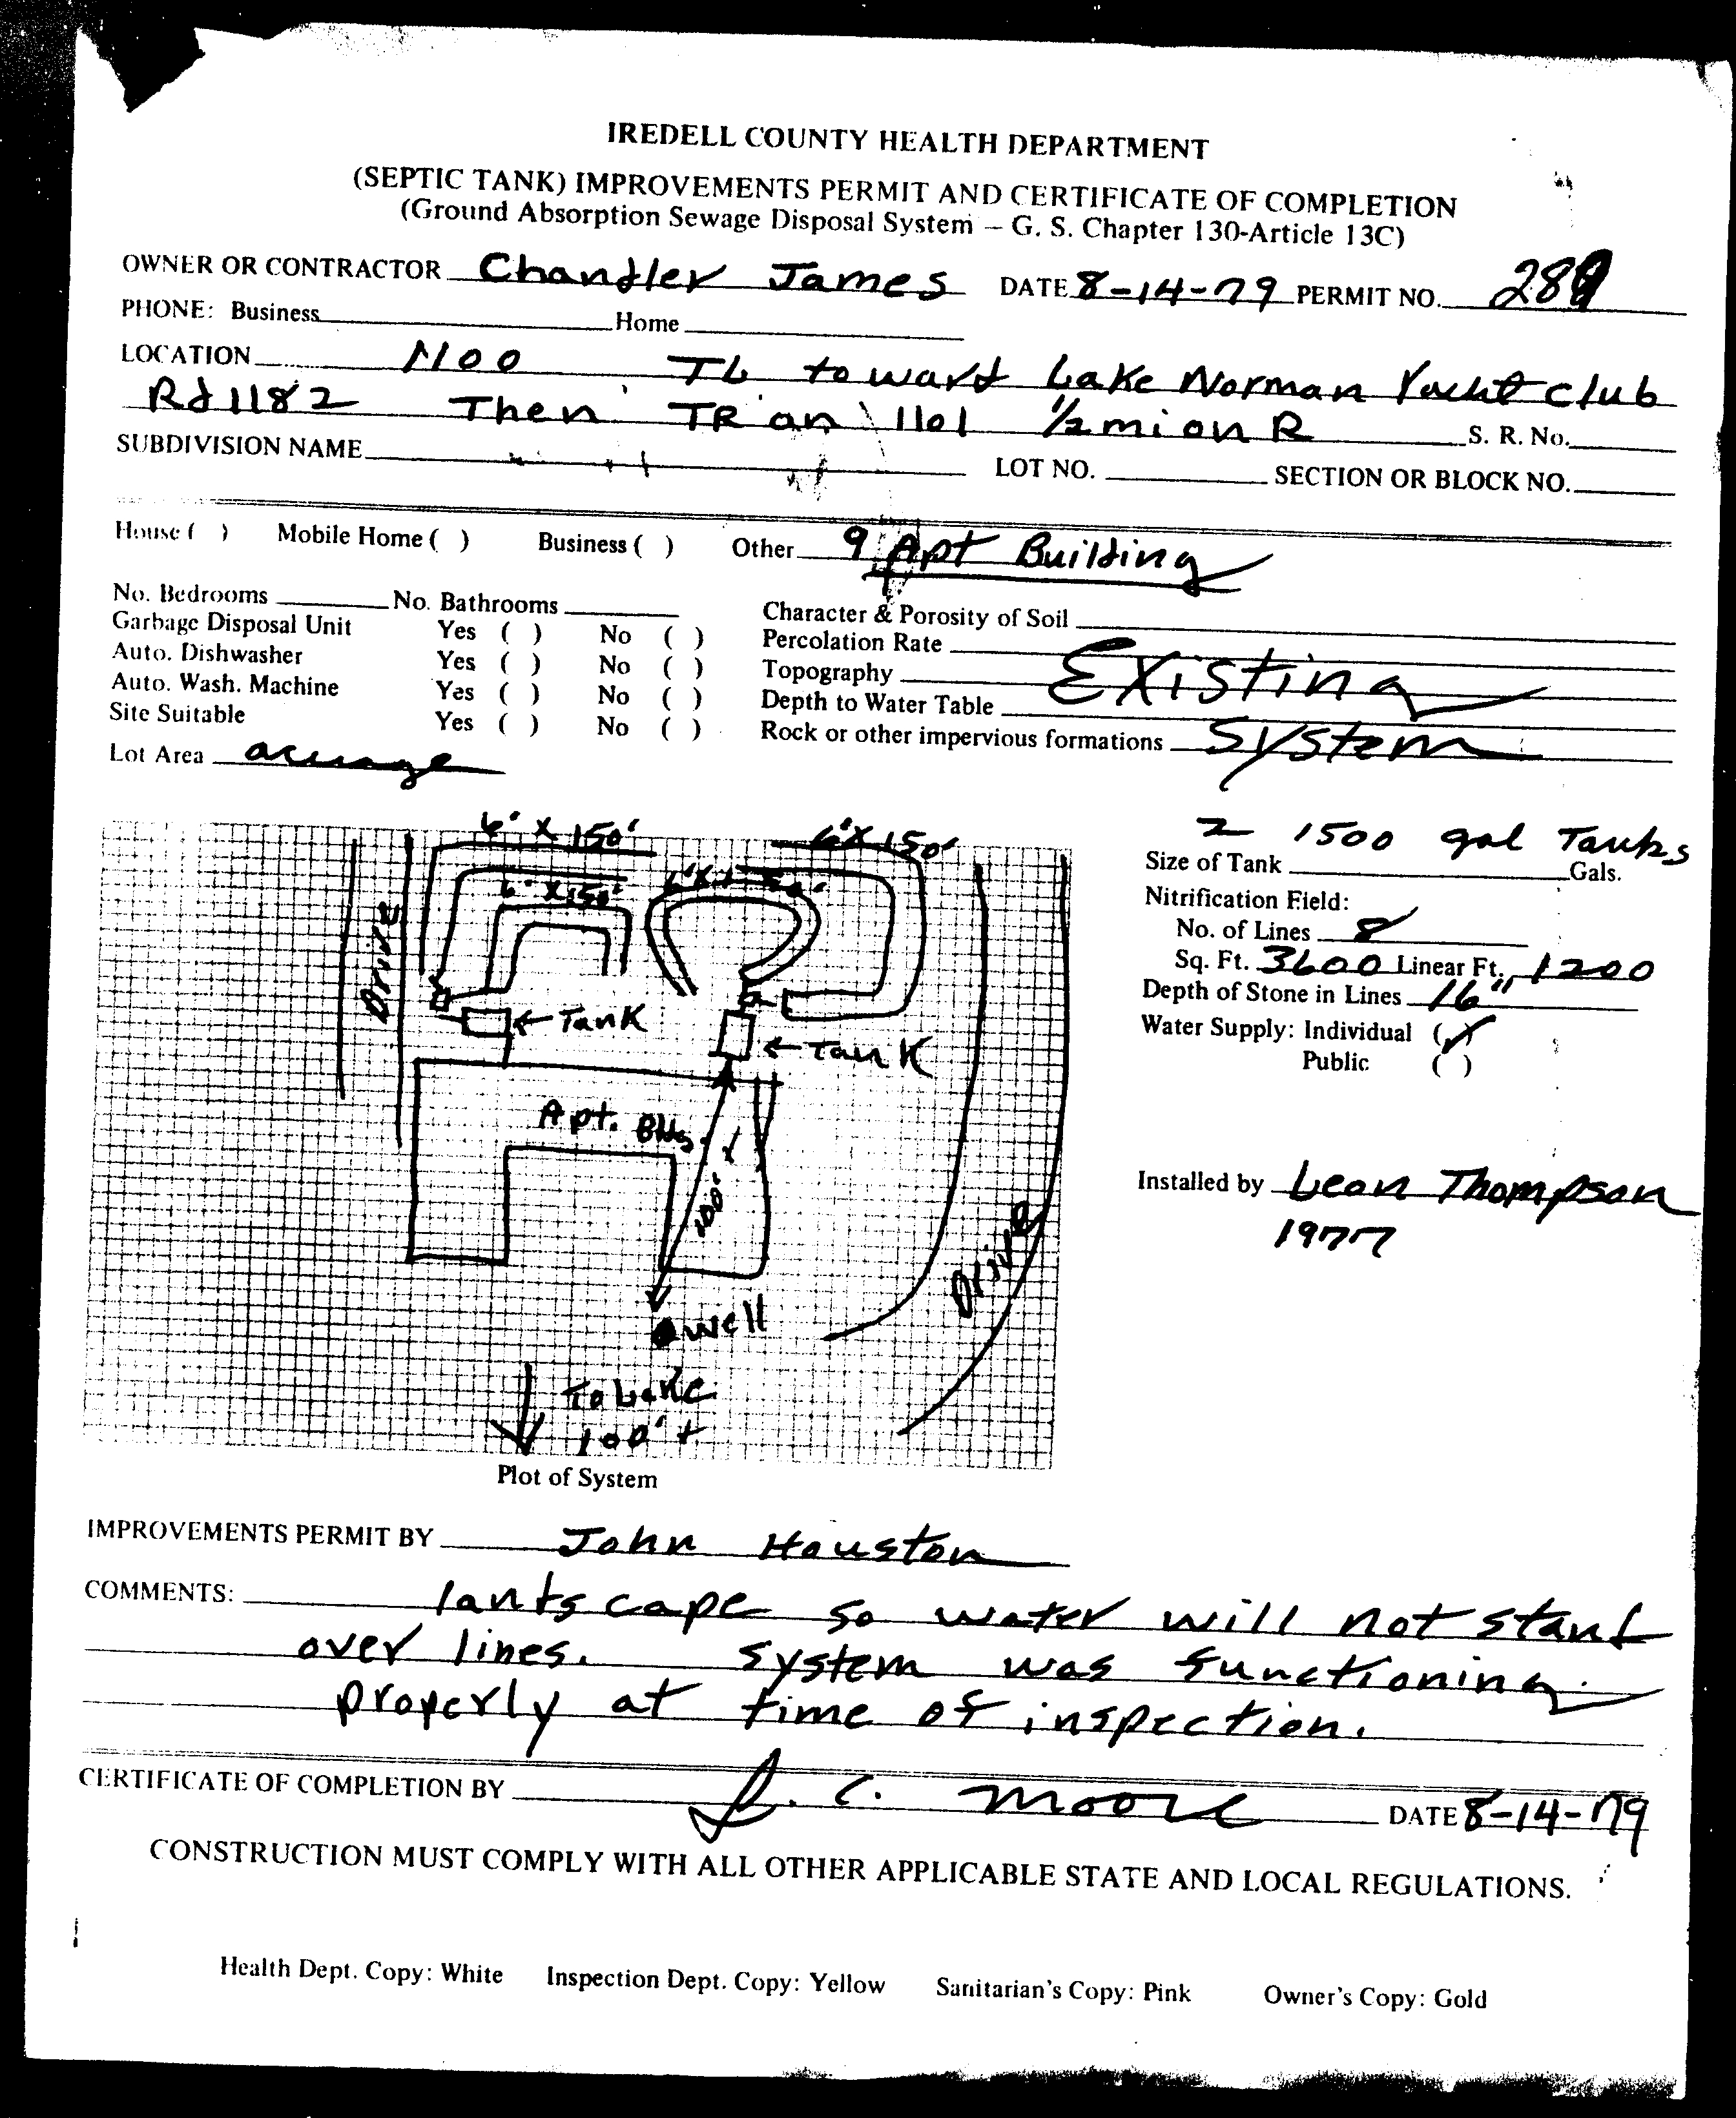 IREDELL COUNTY HEALTH DEPARTMENT
(SEPTIC TANK) IMPROVEMENTS PERMIT AND CERTIFICATE OF COMPLETION
(Ground Absorption Sewage Disposal System — G. S. Chapter 130-Article 13C)
OWNER OR CONTRACTOR Chandler James DATE 8-14-79 PERMIT NO.
PHONE: Business Home
LOCATION 1100 TL toward Lake Norman Yacht club
Rd 1182 Then TR on 1101 1/2 mi on R S. R. No.
SUBDIVISION NAME LOT NO. SECTION OR BLOCK NO.
House ( ) Mobile Home ( ) Business ( ) Other 9 Apt Building
No. Bedrooms No. Bathrooms Character & Porosity of Soil
Garbage Disposal Unit Yes ( ) No ( ) Percolation Rate
Auto. Dishwasher Yes ( ) No ( ) Topography Existing
Auto. Wash. Machine Yes ( ) No ( ) Depth to Water Table
Site Suitable Yes ( ) No ( ) Rock or other impervious formations System
Lot Area acreage
6' X 150' 6'X150'
6' X 150' 6'X150'
Drive
Tank
Tank
Apt. Bldg.
100'
Drive
well
To Lake
100'+
Plot of System
2 1500 gal Tanks
Size of Tank Gals.
Nitrification Field:
No. of Lines 8
Sq. Ft. 3600 Linear Ft. 1200
Depth of Stone in Lines 16"
Water Supply: Individual (✓)
Public ( )
Installed by Leon Thompson
1977
IMPROVEMENTS PERMIT BY John Houston
COMMENTS: landscape so water will not stand
over lines. System was functioning
properly at time of inspection.
CERTIFICATE OF COMPLETION BY J. C. Moore DATE 8-14-79
CONSTRUCTION MUST COMPLY WITH ALL OTHER APPLICABLE STATE AND LOCAL REGULATIONS.
Health Dept. Copy: White Inspection Dept. Copy: Yellow Sanitarian's Copy: Pink Owner's Copy: Gold